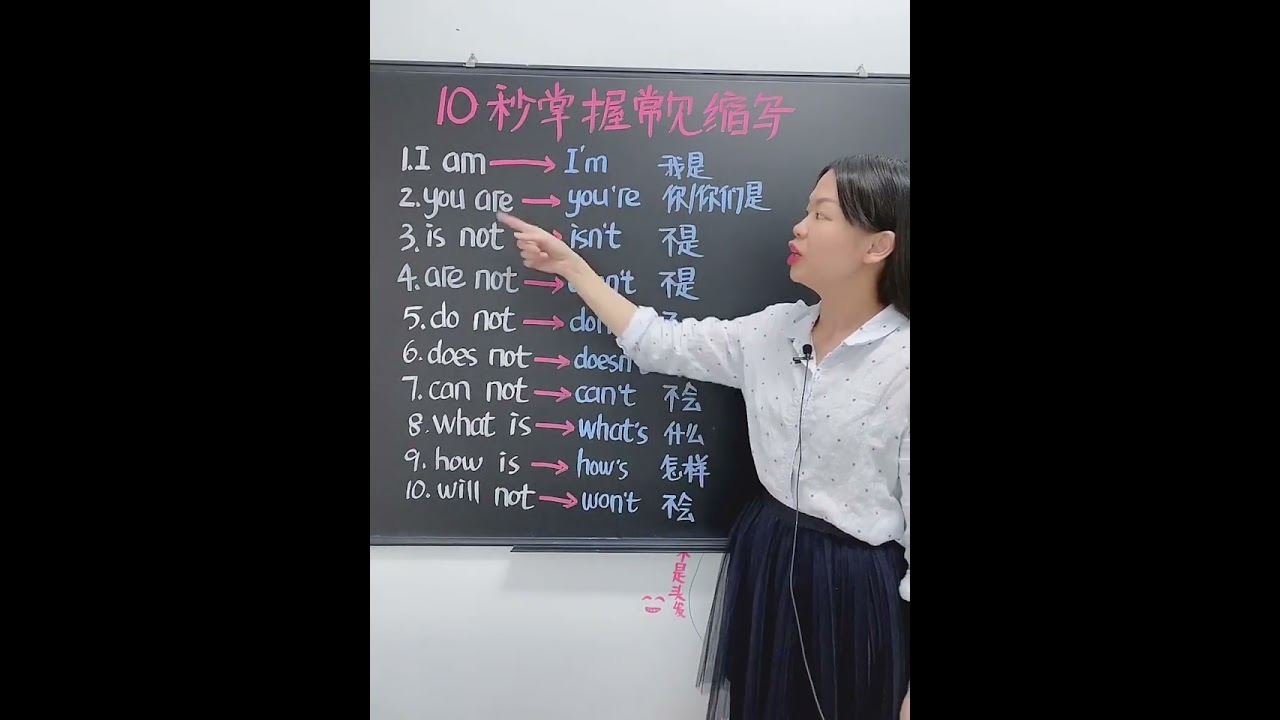 10秒掌握常见缩写
1. I am → I'm 我是
2. you are → you're 你/你们是
3. is not isn't 不是
4. are not → 不是
5. do not →
6. does not →
7. can not → can't 不会
8. what is → what's 什么
9. how is → how's 怎样
10. will not → won't 不会
不是头发